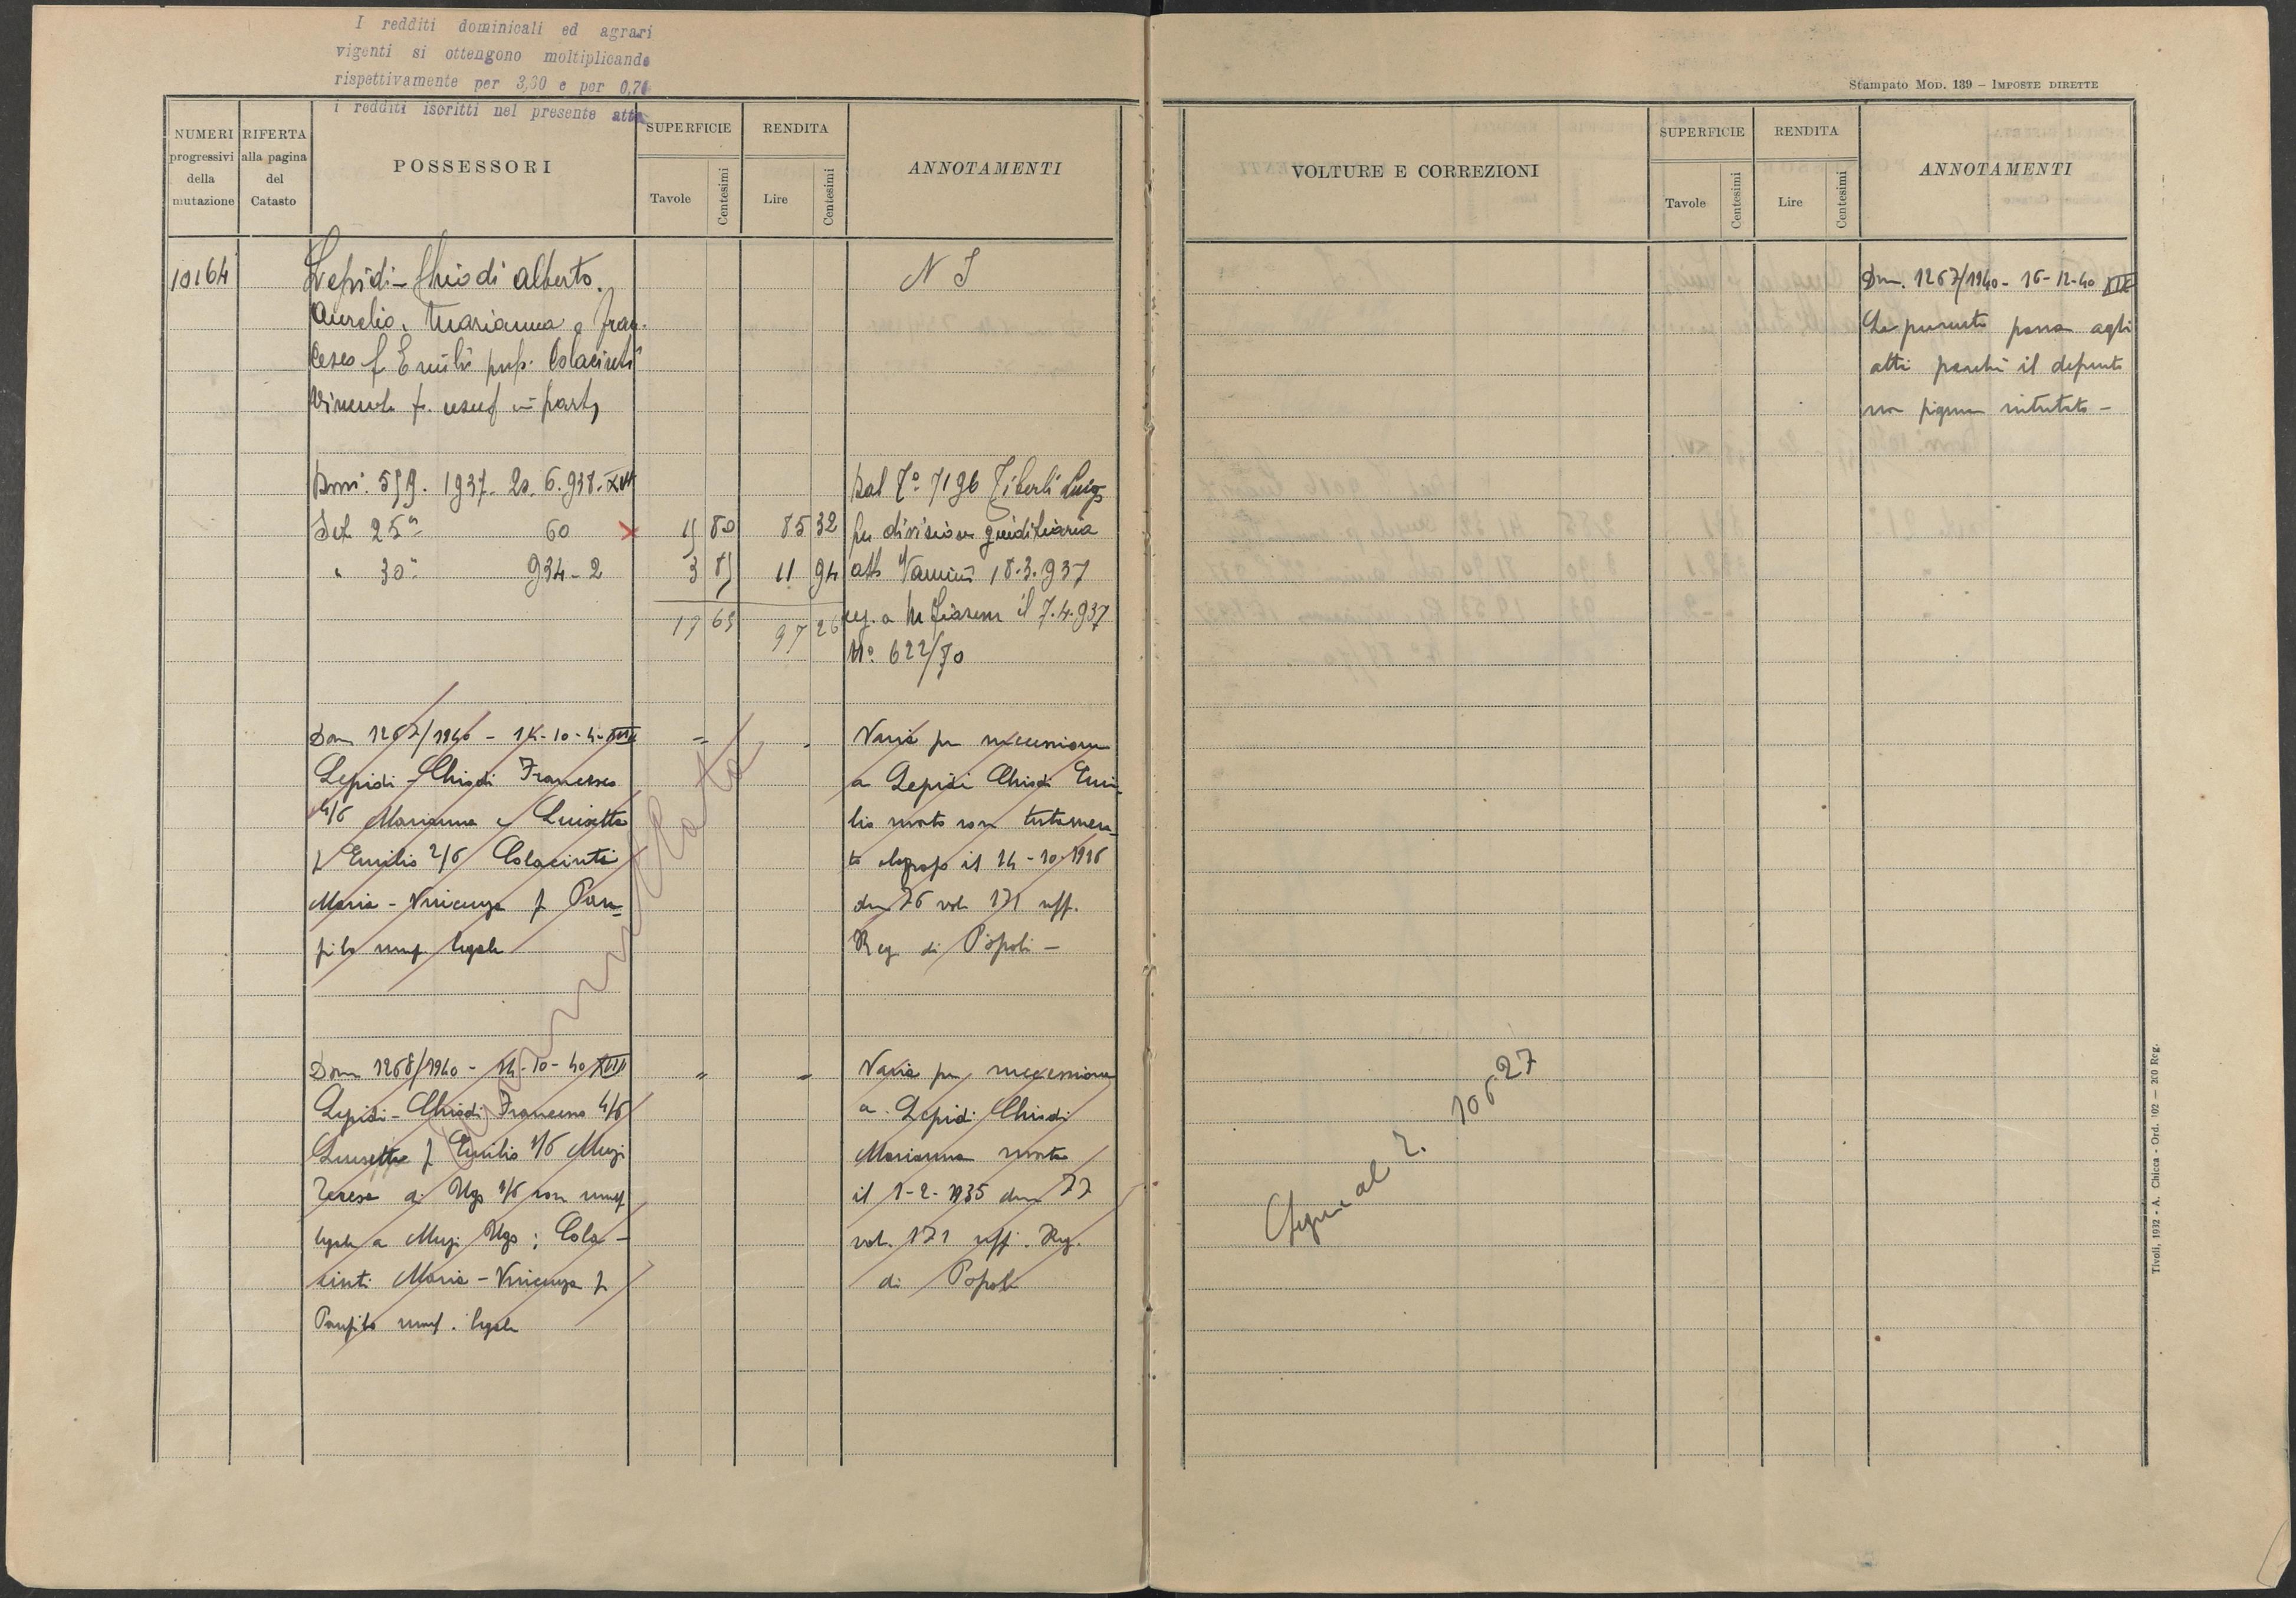 I redditi dominicali ed agrari
vigenti si ottengono moltiplicando
rispettivamente per 3,60 e per 0,70
i redditi iscritti nel presente atto
Stampato Mod. 139 – Imposte dirette
NUMERI progressivi della mutazione
RIFERTA alla pagina del Catasto
POSSESSORI
SUPERFICIE
Tavole
Centesimi
RENDITA
Lire
Centesimi
ANNOTAMENTI
VOLTURE E CORREZIONI
SUPERFICIE
Tavole
Centesimi
RENDITA
Lire
Centesimi
ANNOTAMENTI
10164
Lepidi-Chiodi Alberto
N I
Aurelio, Marianna e Fran-
cesco f Emilio Colacinti
f. usuf in parte
559. 1937. 20. 6. 938. XVI
Dal 7196 Tiberti Luigi
Set 25a 60 × 15 80 85 32 per divisione giudiziaria
" 30a 934-2 3 85 11 94 atto 18.3.937
19 65 97 26 reg. a il 7.4.937
No. 622/80
Dom 1267/1940 - 14-10-4- XVIII " " Varia per successione
Lepidi-Chiodi Francesco a Lepidi Chiodi Emi-
4/6 Marianna e Luisetta lio morto con testamen-
f Emilio 2/6 Colacinti to olografo il 14-10-1916
Maria-Vincenza f Pan- den 76 vol 171 uff.
filo usuf legale Reg di Popoli -
Dom 1268/1940 - 14-10-40 XVIII " " Varia per successione
Lepidi-Chiodi Francesco 4/6 a Lepidi Chiodi
Luisetta f Emilio 1/6 Muzi Marianna morta
Teresa di Ugo 1/6 con usuf il 1-2-1935 den 77
legale a Muzi Ugo; Cola- vol. 171 uff. Reg.
cinti Maria-Vincenza f di Popoli
Panfilo usuf. legale
Annullata
Dom. 1267/1940 - 16-12-40 XIX
La presente passa agli
atti perchè il defunto
non figura intestato -
Segue al 10627
Tivoli, 1932 - A. Chicca - Ord. 102 — 200 Reg.